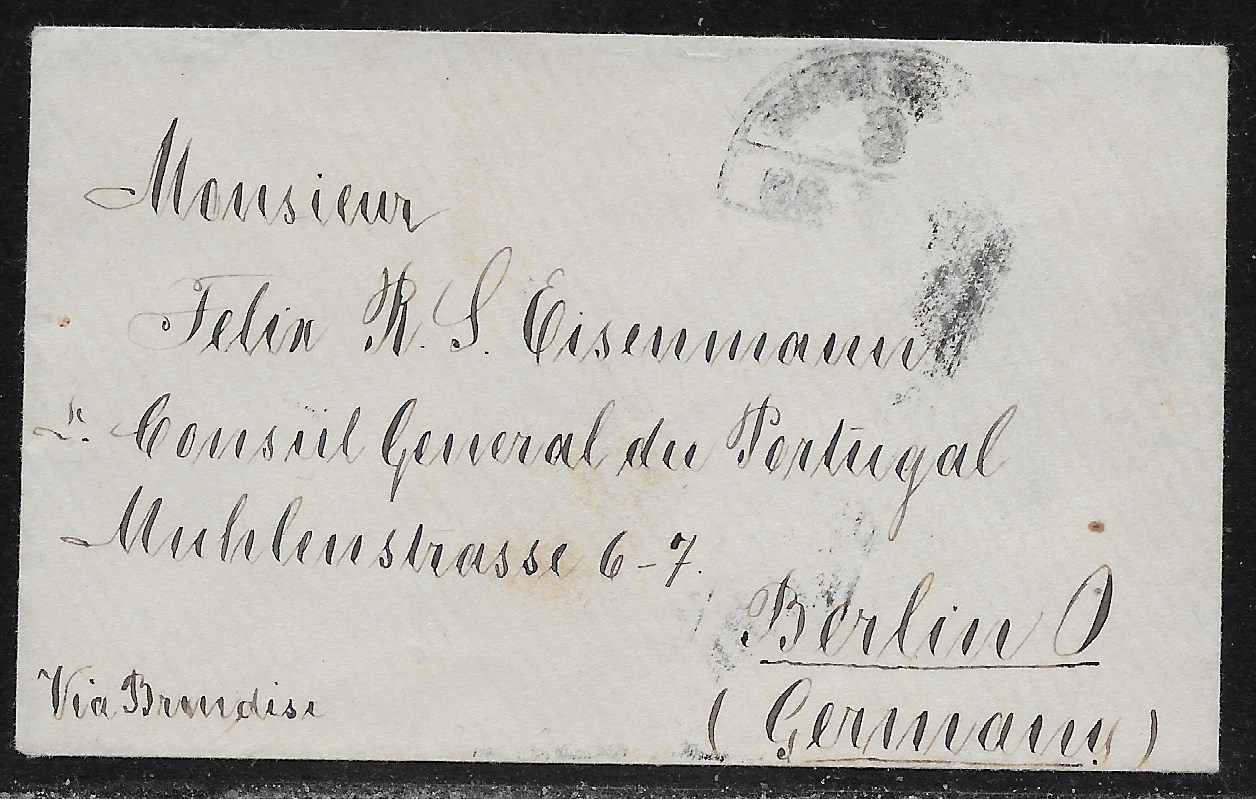 Monsieur
Felix R. S. Eisenmann
Consul General du Portugal
Muhlenstrasse 6-7.
Berlin O
Via Brindisi
(Germany)